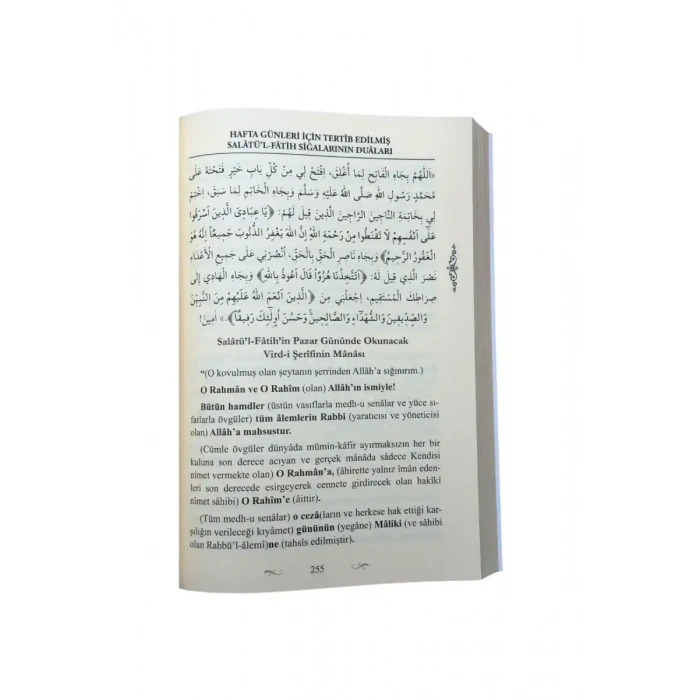 HAFTA GÜNLERİ İÇİN TERTÎB EDİLMİŞ
SALÂTÜ'L-FÂTİH SÎĞALARININ DUÂLARI
«اَللّٰهُمَّ بِجَاهِ الْفَاتِحِ لِمَا أُغْلِقَ، اِفْتَحْ لِي مِنْ كُلِّ بَابِ خَيْرٍ فَتَحْتَهُ عَلَى
مُحَمَّدٍ رَسُولِ اللّٰهِ صَلَّى اللّٰهُ عَلَيْهِ وَسَلَّمَ وَبِجَاهِ الْخَاتِمِ لِمَا سَبَقَ، اِخْتِمْ
لِي بِخَاتِمَةِ النَّاجِينَ الرَّاجِينَ الَّذِينَ قِيلَ لَهُمْ: ﴿يَا عِبَادِيَ الَّذِينَ أَسْرَفُوا
عَلَى أَنْفُسِهِمْ لَا تَقْنَطُوا مِنْ رَحْمَةِ اللّٰهِ إِنَّ اللّٰهَ يَغْفِرُ الذُّنُوبَ جَمِيعًا إِنَّهُ هُوَ
الْغَفُورُ الرَّحِيمُ﴾ وَبِجَاهِ نَاصِرِ الْحَقِّ بِالْحَقِّ، اُنْصُرْنِي عَلَى جَمِيعِ الْأَعْدَاءِ
نَصْرَ الَّذِي قِيلَ لَهُ: ﴿أَتَتَّخِذُنَا هُزُوًا قَالَ أَعُوذُ بِاللّٰهِ﴾ وَبِجَاهِ الْهَادِي إِلَى
صِرَاطِكَ الْمُسْتَقِيمِ، اِجْعَلْنِي مِنَ ﴿الَّذِينَ أَنْعَمَ اللّٰهُ عَلَيْهِمْ مِنَ النَّبِيِّينَ
وَالصِّدِّيقِينَ وَالشُّهَدَاءِ وَالصَّالِحِينَ وَحَسُنَ أُولٰئِكَ رَفِيقًا﴾.» اٰمِينَ!
Salâtü'l-Fâtih'in Pazar Gününde Okunacak
Vird-i Şerîfinin Mânâsı
"(O kovulmuş olan şeytanın şerrinden Allâh'a sığınırım.)
O Rahmân ve O Rahîm (olan) Allâh'ın ismiyle!
Bütün hamdler (üstün vasıflarla medh-u senâlar ve yüce sı-
fatlarla övgüler) tüm âlemlerin Rabbi (yaratıcısı ve yöneticisi
olan) Allâh'a mahsustur.
(Cümle övgüler dünyâda mümin-kâfir ayırmaksızın her bir
kuluna son derece acıyan ve gerçek mânâda sâdece Kendisi
nîmet vermekte olan) O Rahmân'a, (âhirette yalnız îman eden-
leri son derecede esirgeyerek cennete girdirecek olan hakîkî
nîmet sâhibi) O Rahîm'e (âittir).
(Tüm medh-u senâlar) o cezâ(ların ve herkese hak ettiği kar-
şılığın verileceği kıyâmet) gününün (yegâne) Mâliki (ve sâhibi
olan Rabbü'l-âlemî)ne (tahsîs edilmiştir).
255